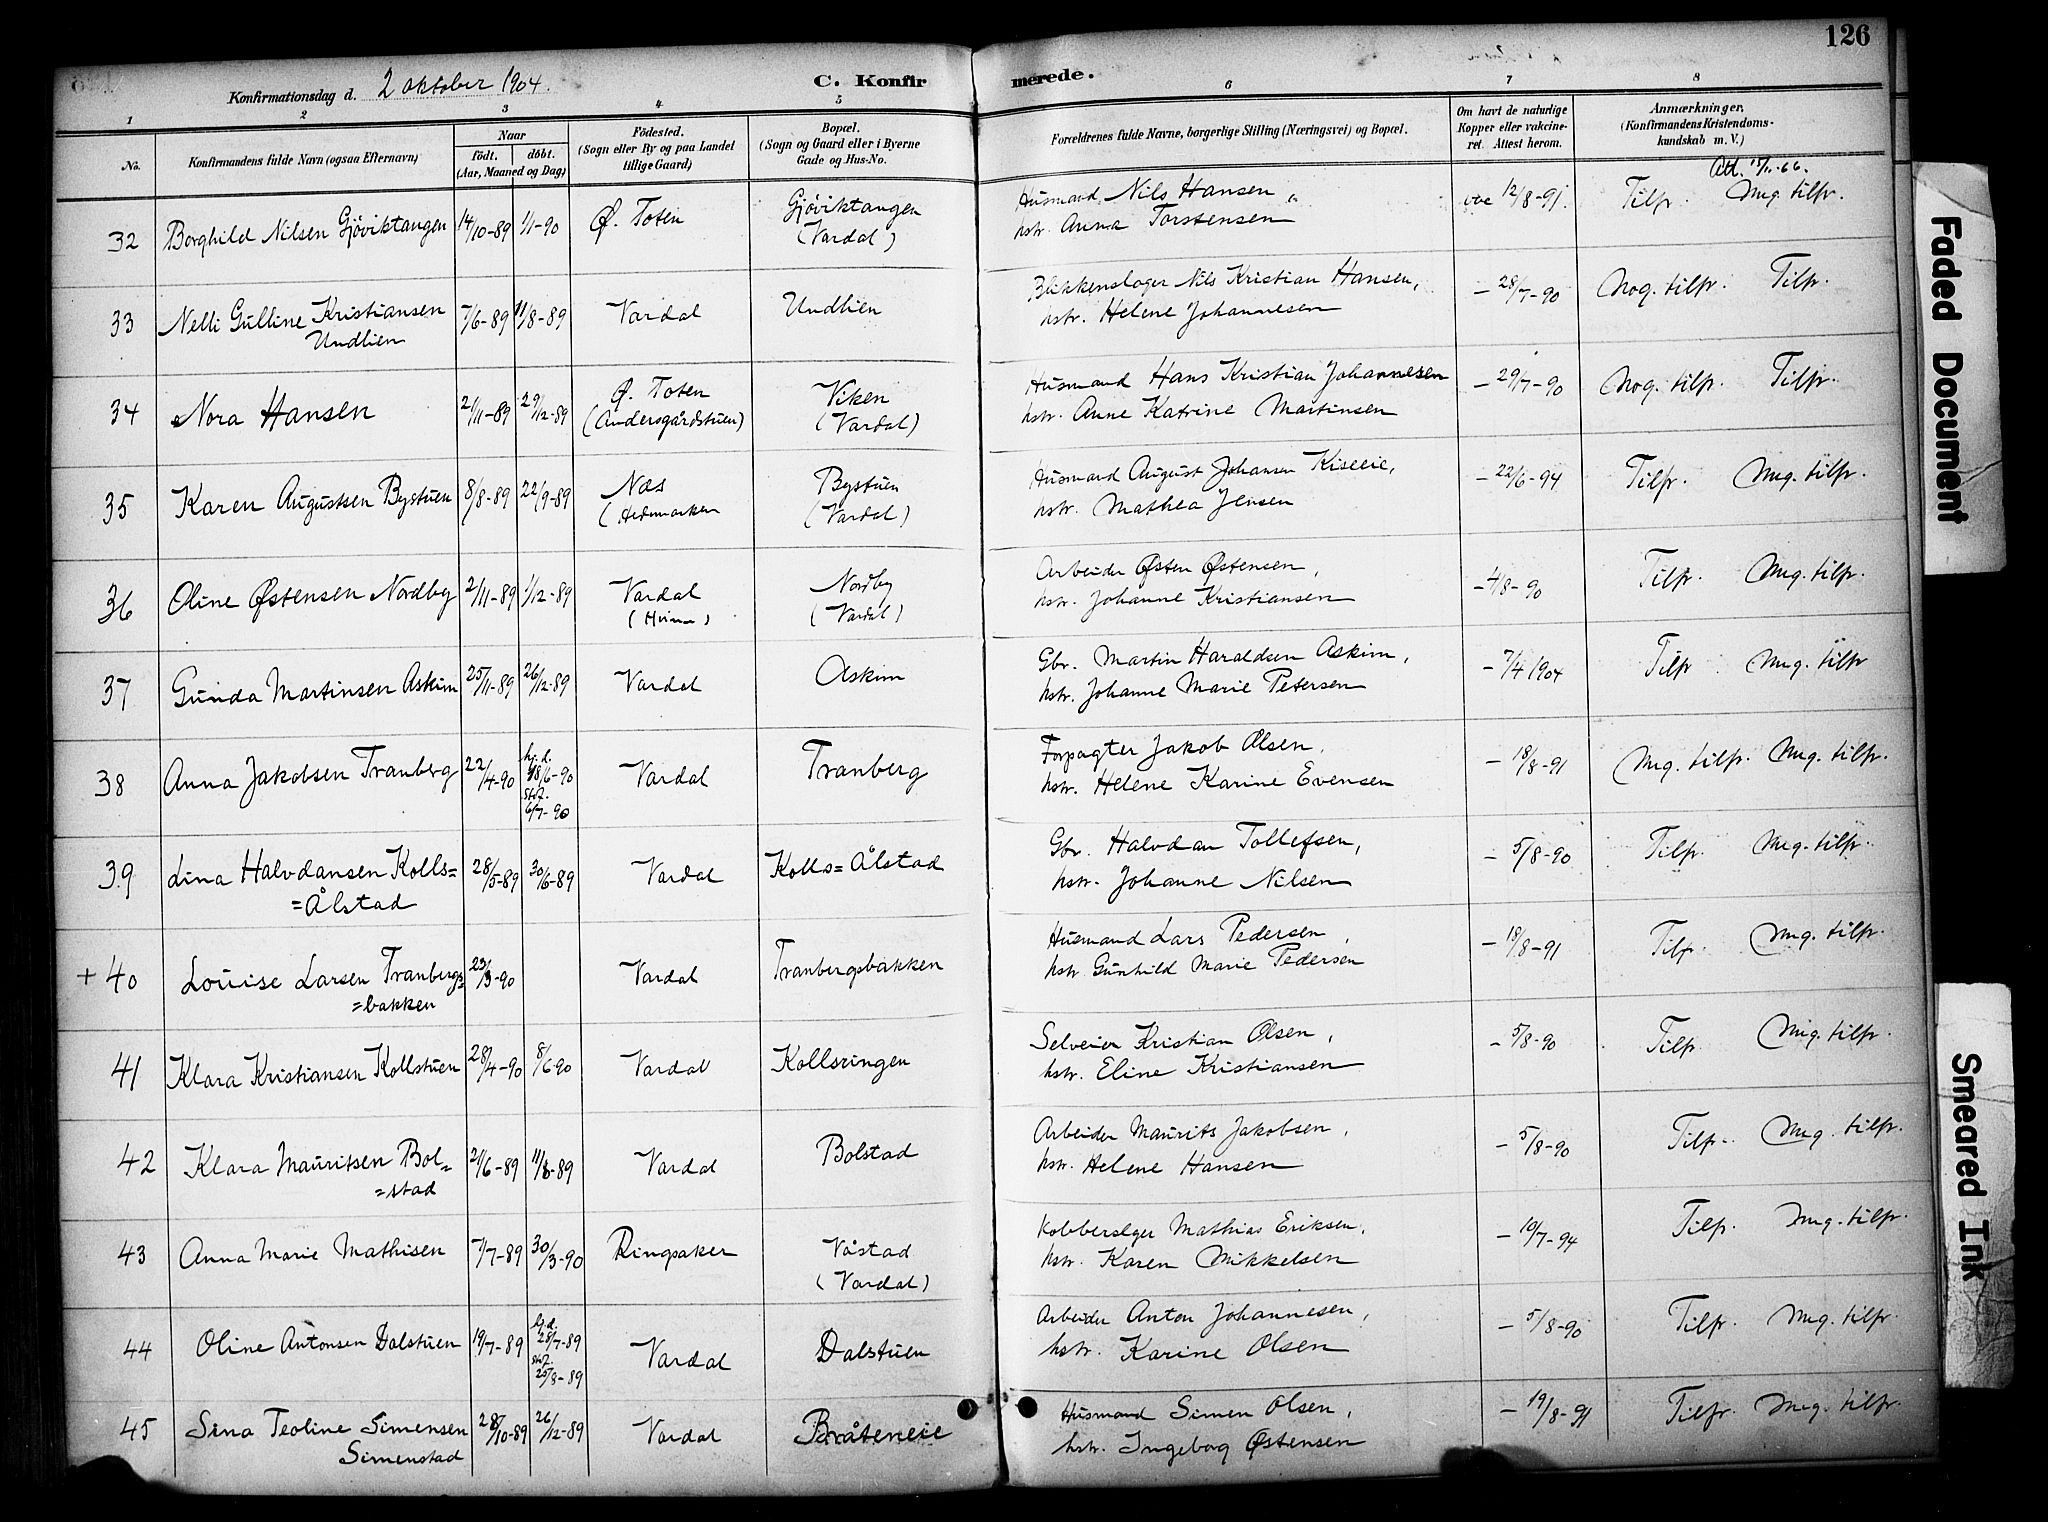 126
Konfirmationsdag d. 2 oktober 1904.
C. Konfirmerede.
1 2 3 4 5 6 7 8
No.
Konfirmandens fulde Navn (ogsaa Efternavn)
Naar
födt. döbt.
(Aar, Maaned og Dag)
Födested.
(Sogn eller By og paa Landet
tillige Gaard)
Bopæl.
(Sogn og Gaard eller i Byerne
Gade og Hus-No.
Forældrenes fulde Navne, borgerlige Stilling (Næringsvei) og Bopæl.
Om havt de naturlige
Kopper eller vakcine-
ret. Attest herom.
Anmærkninger.
(Konfirmandens Kristendoms-
kundskab m. V.)
32 Borghild Nilsen Gjöviktangen 14/10-89 1/1-90 Ø. Toten Gjöviktangen Husmand Nils Hansen, vac 12/8-91. Tilfr. Mg. tilfr.
(Vardal) hstr. Anna Torstensen
33 Nelli Gulline Kristiansen 7/6-89 11/8-89 Vardal Undlien Blikkenslager Nils Kristian Hansen, - 28/7-90 Nog. tilfr. Tilfr.
Undlien hstr. Helene Johannesen
34 Nora Hansen 21/11-89 29/12-89 Ø. Toten Viken Husmand Hans Kristian Johannesen - 29/7-90 Nog. tilfr. Tilfr.
(Andersgårdstuen) (Vardal) hstr. Anne Katrine Martinsen
35 Karen Augustsen Bystuen 8/8-89 22/9-89 Næs Bystuen Husmand August Johansen Kiseeie, - 22/6-94 Tilfr. Mg. tilfr.
(Hedemarken (Vardal) hstr. Mathea Jensen
36 Oline Østensen Nordby 2/11-89 1/12-89 Vardal Nordby Arbeider Østen Østensen, - 4/8-90 Tilfr. Mg. tilfr.
(Vardal) hstr. Johanne Kristiansen
37 Gunda Martinsen Askim 25/11-89 26/12-89 Vardal Askim Gbr. Martin Haraldsen Askim, - 7/4 1904 Tilfr. Mg. tilfr
hstr. Johanne Marie Petersen
38 Anna Jakobsen Tranberg 22/4-90 hj.d. 18/6-90 Vardal Tranberg Forpagter Jakob Olsen, - 18/8-91 Mg. tilfr. Mg. tilfr.
stf. 6/7-90 hstr. Helene Karine Evensen
39 Lina Halvdansen Kolls= 28/5-89 30/6-89 Vardal Kolls=Ålstad Gbr. Halvdan Tollefsen, - 5/8-90 Tilfr. Mg. tilfr.
=Ålstad hstr. Johanne Nilsen
+ 40 Louise Larsen Tranbergs= 23/3-90 Vardal Tranbergsbakken Husmand Lars Pedersen, - 18/8-91 Tilfr. Mg. tilfr.
=bakken hstr. Gunhild Marie Pedersen
41 Klara Kristiansen Kollstuen 28/4-90 8/6-90 Vardal Kollsringen Selveier Kristian Olsen, - 5/8-90 Tilfr. Mg. tilfr.
hstr. Eline Kristiansen
42 Klara Mauritsen Bol= 21/6-89 11/8-89 Vardal Bolstad Arbeider Maurits Jakobsen, - 5/8-90 Tilfr. Mg. tilfr.
=stad hstr. Helene Hansen
43 Anna Marie Mathisen 7/7-89 30/3-90 Ringsaker Våstad Mathias Eriksen, - 19/7-94 Tilfr. Mg. tilfr.
(Vardal) hstr. Karen Mikkelsen
44 Oline Antonsen Dalstuen 19/7-89 hj.d. 28/7-89 Vardal Dalstuen Arbeider Anton Johannesen, - 5/8-90 Tilfr. Mg. tilfr.
stf. 25/8-89 hstr. Karine Olsen
45 Sina Teoline Simensen 28/10-89 26/12-89 Vardal Bråteneie Husmand Simen Olsen, - 19/8-91 Tilfr. Mg. tilfr.
Simenstad hstr. Ingebog Østensen
Faded Document
Smeared Ink